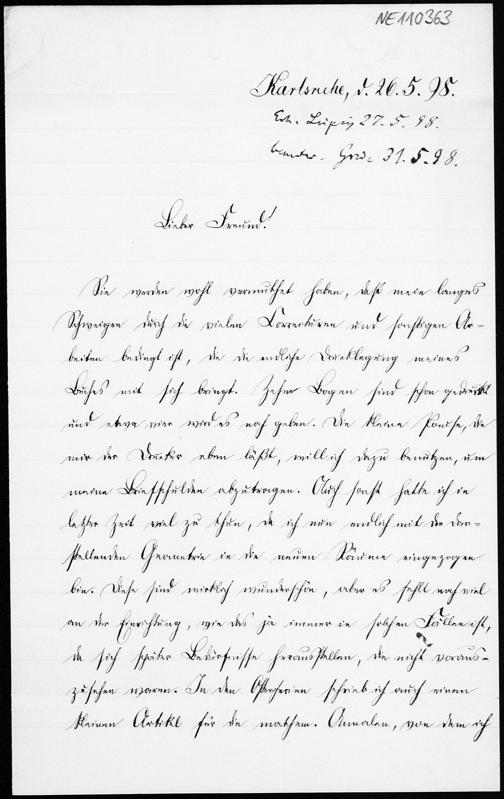 NE110363
Karlsruhe, d. 26.5.98.
Erh. Leipzig 27.5.98.
31.5.98.
Lieber Freund!
Sie werden wohl vermuthet haben, daß mein langes
Schweigen durch die vielen Correcturen und sonstigen Ar-
beiten bedingt ist, die die endliche Drucklegung meines
Buches mit sich bringt. Zehn Bogen sind schon gedruckt
und etwa vier wird es noch geben. Die kleine Pause, die
mir der Drucker eben läßt, will ich dazu benutzen, um
meine Briefschulden abzutragen. Auch sonst hatte ich in
letzter Zeit viel zu thun, da ich nun endlich mit der dar-
stellenden Geometrie in die neuen Räume eingezogen
bin. Diese sind wirklich wunderschön, aber es fehlt noch viel
an der Einrichtung, wie das ja immer in solchen Fällen ist,
da sich später Bedürfnisse herausstellen, die nicht voraus-
zusehen waren. In den Osterferien schrieb ich auch einen
kleinen Artikel für die mathem. Annalen, von dem ich